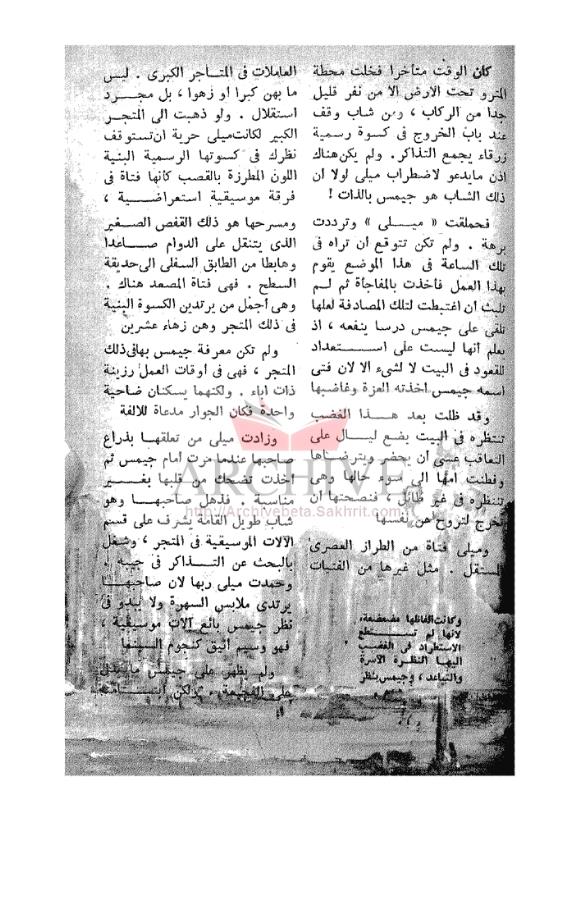 كان الوقت متأخرا فخلت محطة
المترو تحت الارض الا من نفر قليل
جدا من الركاب ، ومن شاب وقف
عند باب الخروج فى كسوة رسمية
زرقاء يجمع التذاكر . ولم يكن هناك
اذن مايدعو لاضطراب ميلى لولا ان
ذلك الشاب هو جيمس بالذات !
فحملقت « ميلى » وترددت
برهة . ولم تكن تتوقع ان تراه فى
تلك الساعة فى هذا الموضع يقوم
بهذا العمل فاخذت بالمفاجأة ثم لم
تلبث ان اغتبطت لتلك المصادفة لعلها
تلقى على جيمس درسا ينفعه ، اذ
يعلم أنها ليست على استعداد
للقعود فى البيت لا لشىء الا لان فتى
اسمه جيمس اخذته العزة وغاضبها
وقد ظلت بعد هذا الغضب
تنتظره فى البيت بضع ليال على
التعاقب عسى أن يحضر ويترضاها
وفطنت امها الى سوء حالها وهى
تنتظره فى غير طائل ، فنصحتها ان
تخرج لتروح عن نفسها
وميلى فتاة من الطراز العصرى
المستقل . مثل غيرها من الفتيات
وكانت الفاظها مضعضعة ،
لانها لم تستطع
الاستطراد فى الغضب
اليها النظرة الآسرة
والتباعد ، وجيمس ينظر
العاملات فى المتاجر الكبرى . ليس
ما بهن كبرا او زهوا ، بل مجرد
استقلال . ولو ذهبت الى المتجر
الكبير لكانت ميلى حرية ان تستوقف
نظرك فى كسوتها الرسمية البنية
اللون المطرزة بالقصب كأنها فتاة فى
فرقة موسيقية استعراضية ،
ومسرحها هو ذلك القفص الصغير
الذى يتنقل على الدوام صاعدا
وهابطا من الطابق السفلى الى حديقة
السطح . فهى فتاة المصعد هناك .
وهى أجمل من يرتدين الكسوة البنية
فى ذلك المتجر وهن زهاء عشرين
ولم تكن معرفة جيمس بها فى ذلك
المتجر ، فهى فى أوقات العمل رزينة
ذات اباء . ولكنهما يسكنان ضاحية
واحدة فكان الجوار مدعاة للالفة
وزادت ميلى من تعلقها بذراع
صاحبها عندما مرت امام جيمس ثم
اخذت تضحك من قلبها بغير
مناسبة . فذهل صاحبها وهو
شاب طويل القامة يشرف على قسم
الآلات الموسيقية فى المتجر ، وشغل
بالبحث عن التذاكر فى جيبه .
وحمدت ميلى ربها لان صاحبها
يرتدى ملابس السهرة ولا يبدو فى
نظر جيمس بائع آلات موسيقية ،
فهو وسيم أنيق كنجوم السينما
ولم يظهر على جيمس ما يدل
على الفجيعة ، ولكن
ARCHIVE
http://Archivebeta.Sakhrit.com